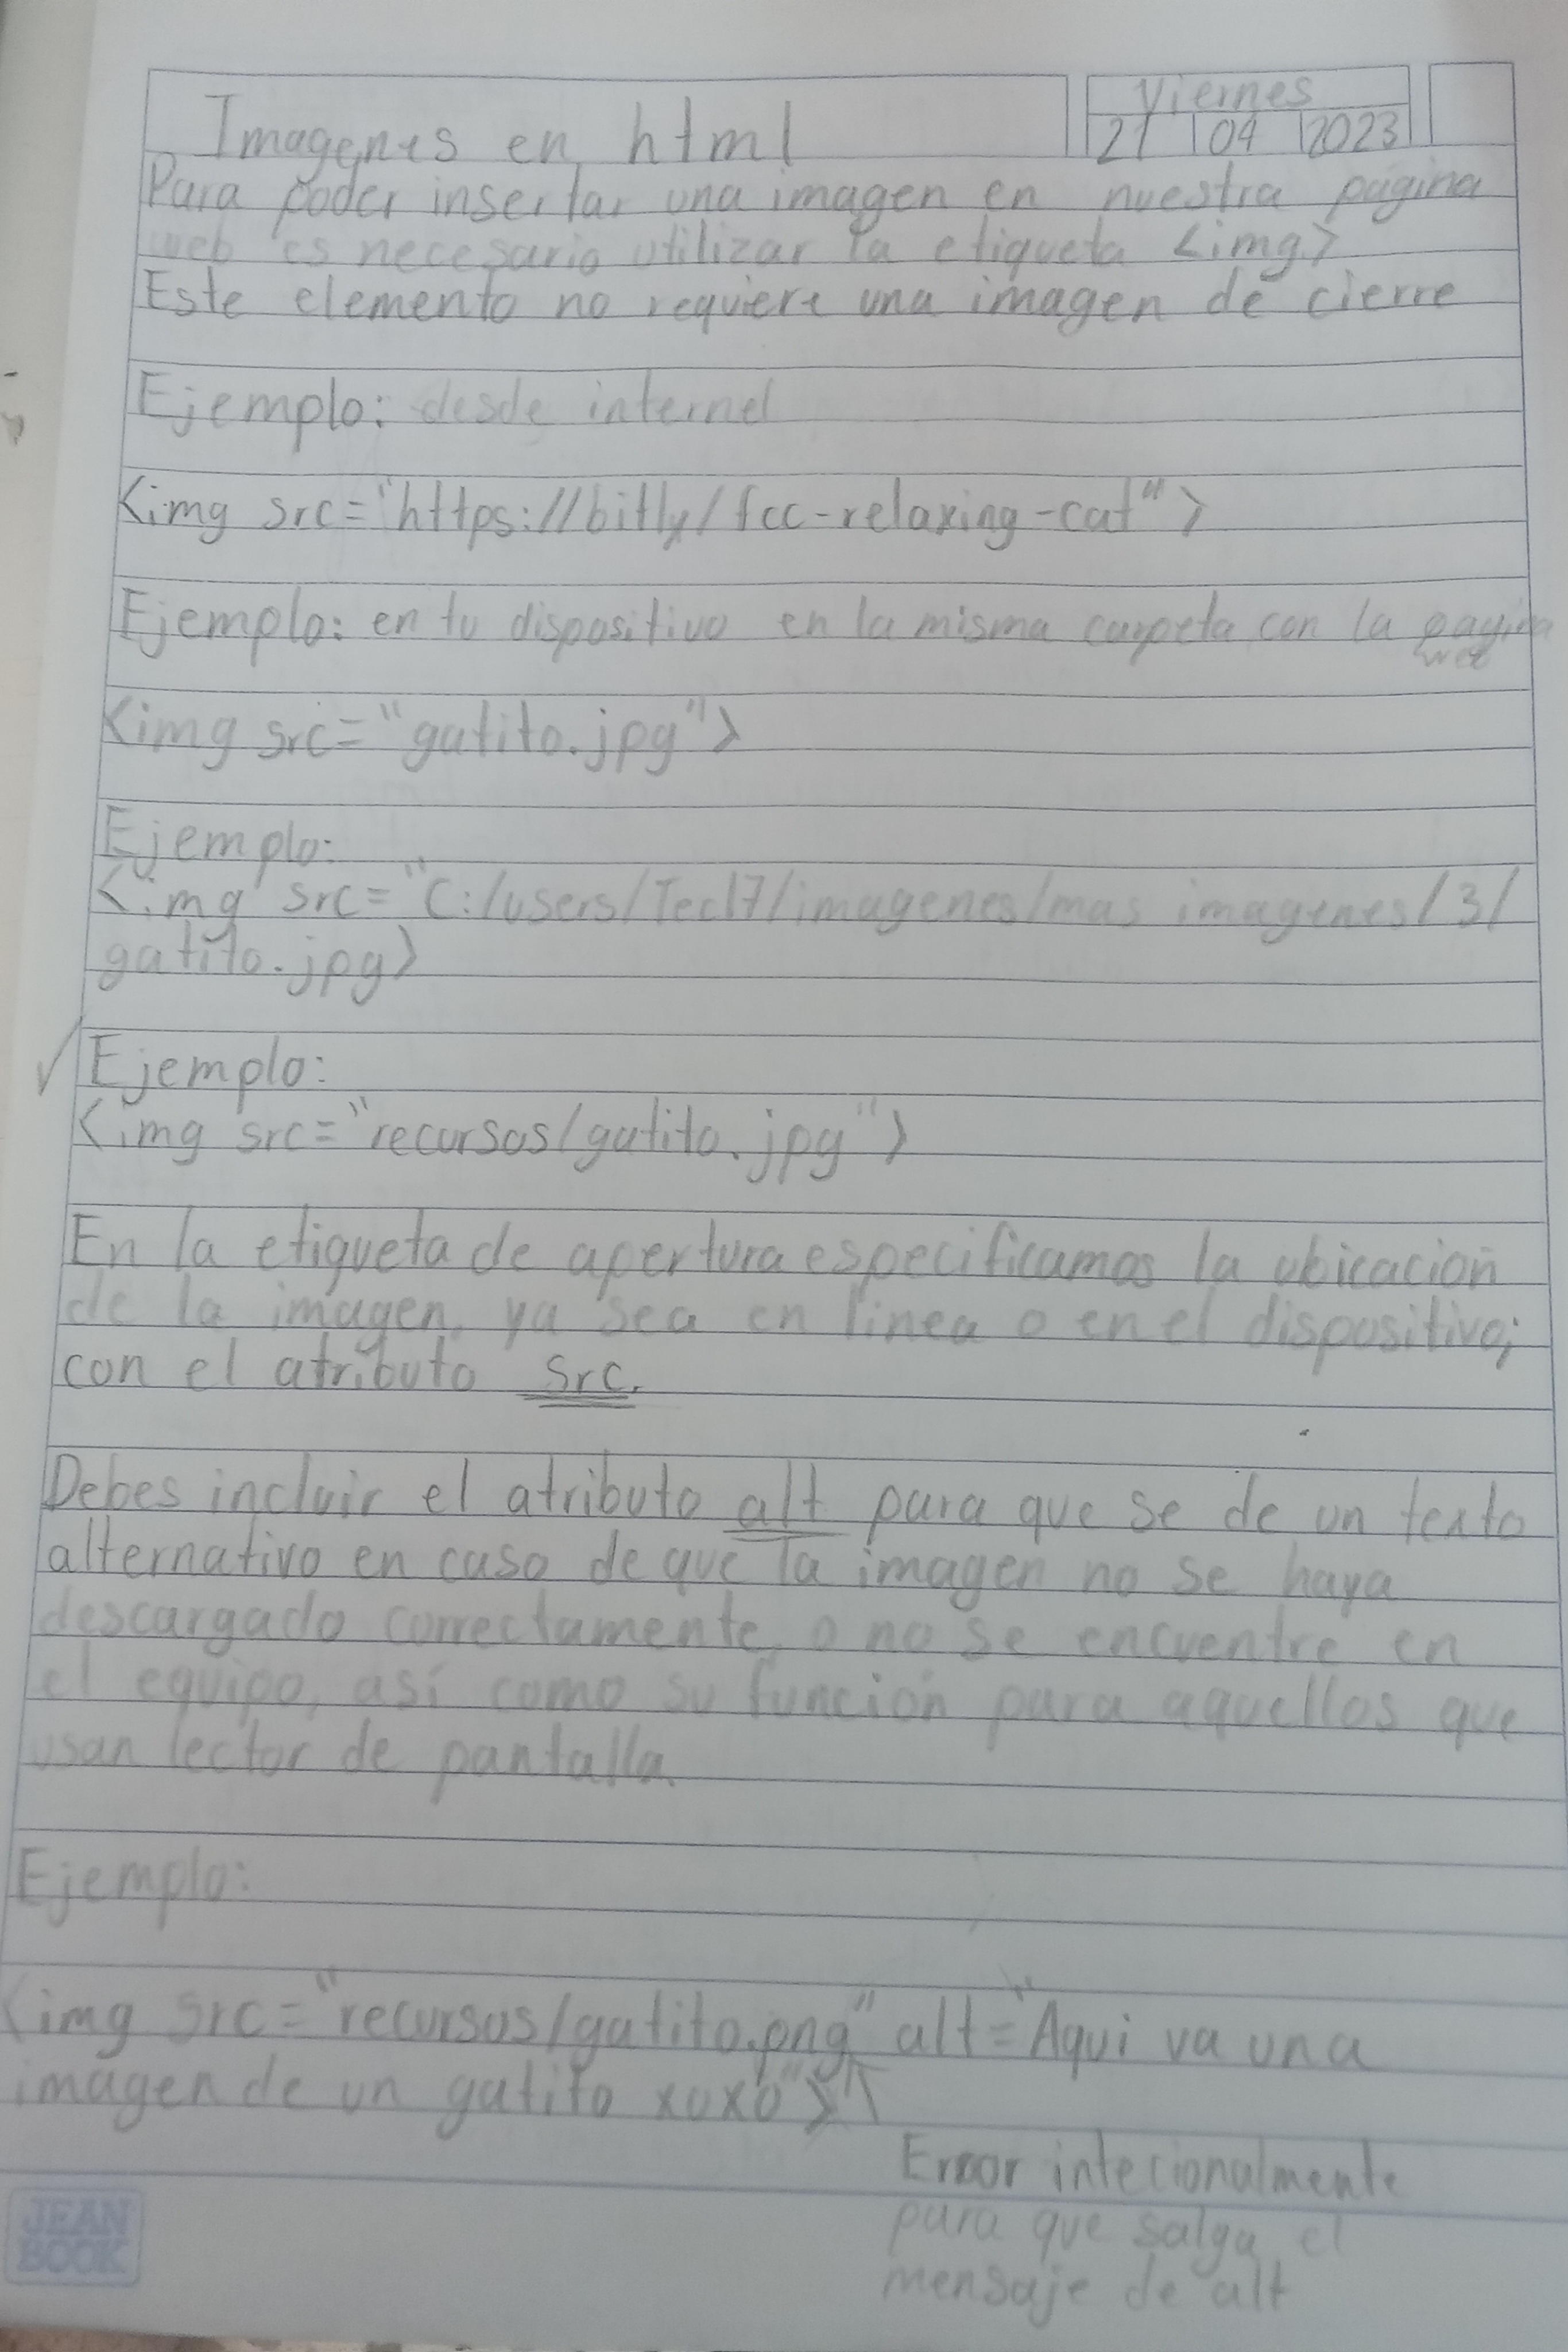 Viernes
Imagenes en html 21 04 2023
Para poder insertar una imagen en nuestra página
web es necesario utilizar la etiqueta <img>
Este elemento no requiere una imagen de cierre
Ejemplo: desde internet
<img src="https://bitly/fcc-relaxing-cat">
Ejemplo: en tu dispositivo en la misma carpeta con la pagina
web
<img src="gatito.jpg">
Ejemplo:
<img src="C:/users/Tec17/imagenes/mas imagenes/3/
gatito.jpg>
✓ Ejemplo:
<img src="recursos/gatito.jpg">
En la etiqueta de apertura especificamos la ubicación
de la imagen, ya sea en linea o en el dispositivo;
con el atributo src.
Debes incluir el atributo alt para que se de un texto
alternativo en caso de que la imagen no se haya
descargado correctamente, o no se encuentre en
el equipo, así como su función para aquellos que
usan lector de pantalla.
Ejemplo:
<img src="recursos/gatito.png" alt="Aqui va una
imagen de un gatito xoxo">
Error intecionalmente
para que salga el
mensaje de alt
JEAN
BOOK